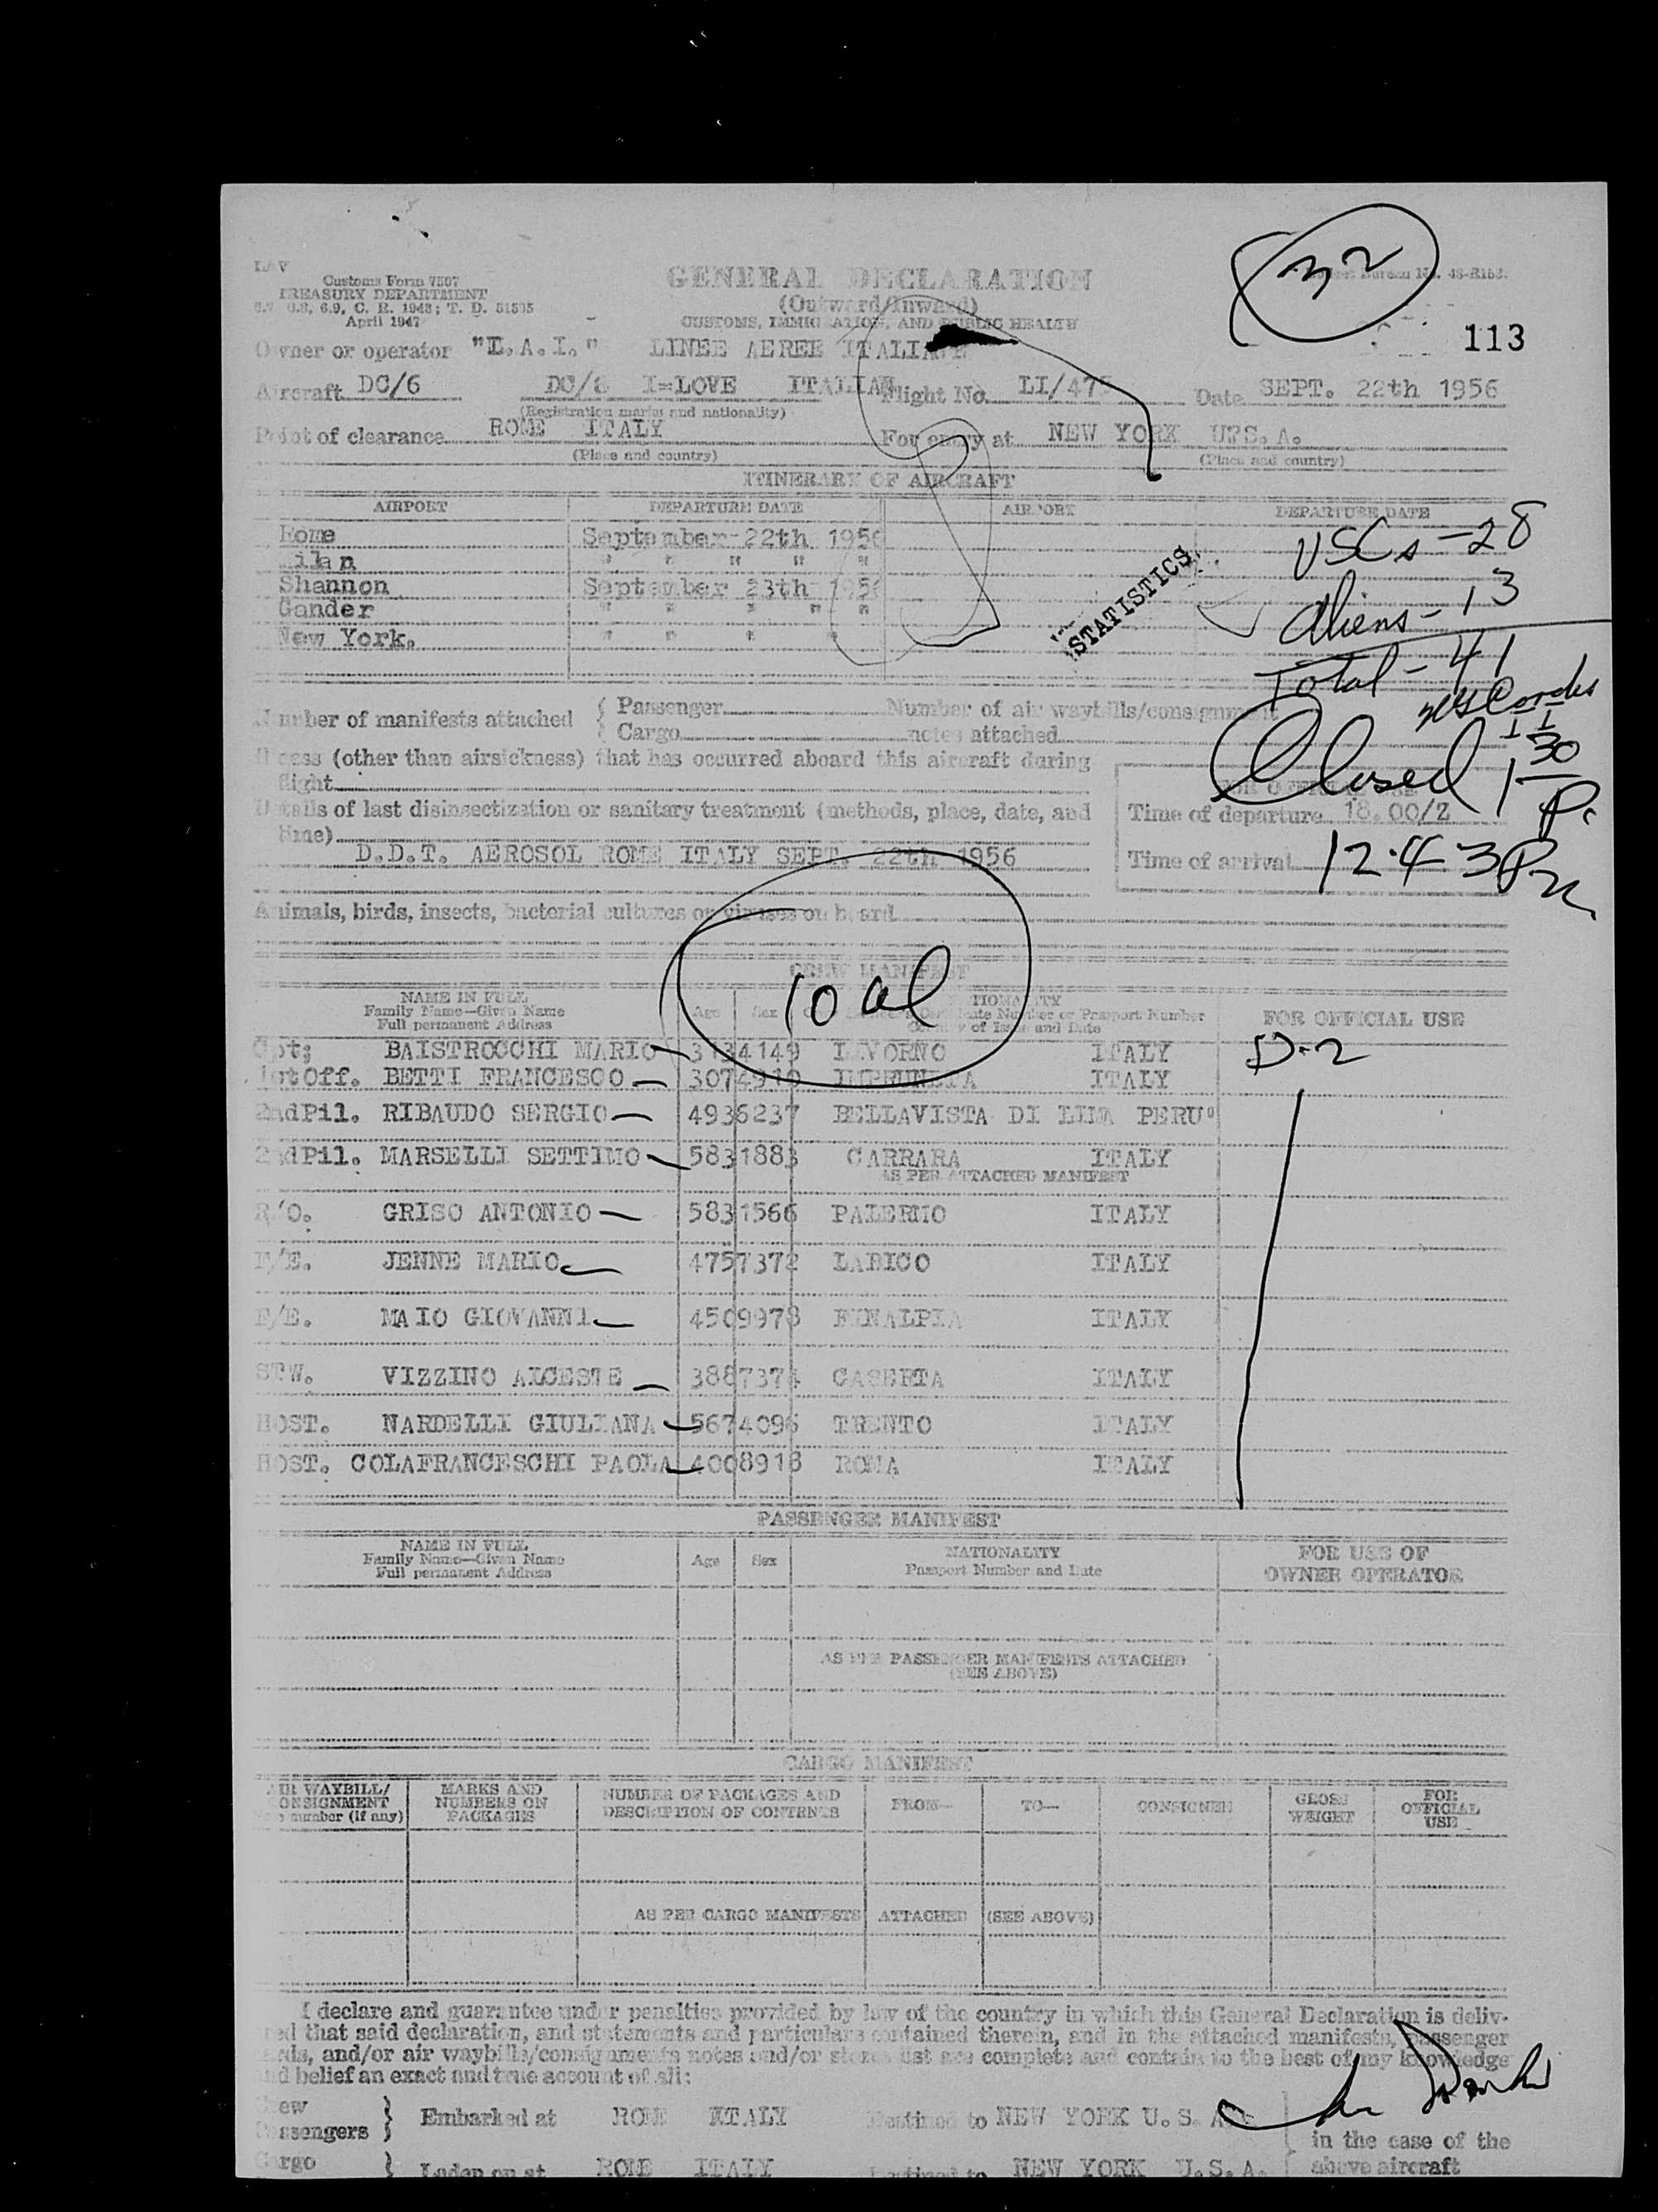 32
Customs Form 7507
TREASURY DEPARTMENT
6.8, 6.9, C. R. 1943; T. D. 51595
April 1947
GENERAL DECLARATION
(Outward/Inward)
CUSTOMS, IMMIGRATION, AND PUBLIC HEALTH
Bureau No. 48-R153.
113
Owner or operator "L.A.I." LINEE AEREE ITALIANE
Aircraft DC/6 DC/6 I=LOVE ITALIAN Flight No. LI/475 Date SEPT. 22th 1956
(Registration marks and nationality)
Point of clearance ROME ITALY For entry at NEW YORK U.S.A.
(Place and country) (Place and country)
ITINERARY OF AIRCRAFT
AIRPORT DEPARTURE DATE AIRPORT DEPARTURE DATE
Rome September-22th 1956
Milan " " " " "
Shannon September 23th 1956
Gander " " " " "
New York. " " " "
STATISTICS
USCs - 28
Aliens - 13
Total - 41
Closed 1 30
Number of manifests attached { Passenger Number of air waybills/consignment
{ Cargo notes attached
Illness (other than airsickness) that has occurred aboard this aircraft during
flight
Details of last disinsectization or sanitary treatment (methods, place, date, and
time)
D.D.T. AEROSOL ROME ITALY SEPT. 22th 1956
FOR OFFICIAL USE
Time of departure 18.00/Z
Time of arrival 12.43 Pm
Animals, birds, insects, bacterial cultures or viruses on board
CREW MANIFEST
10 al
NAME IN FULL
Family Name—Given Name
Full permanent Address
Age Sex NATIONALITY
Certificate Number or Passport Number
Country of Issue and Date
FOR OFFICIAL USE
Cpt; BAISTROCCHI MARIO 3134149 LIVORNO ITALY D-2
1stOff. BETTI FRANCESCO 3074910 IMPRUNETA ITALY
2ndPil. RIBAUDO SERGIO 4936237 BELLAVISTA DI LIMA PERU'
2ndPil. MARSELLI SETTIMO 5831883 CARRARA ITALY
AS PER ATTACHED MANIFEST
R/O. GRISO ANTONIO 5831566 PALERMO ITALY
F/E. JENNE MARIO 4757372 LABICO ITALY
F/E. MAIO GIOVANNI 4509978 FINALPIA ITALY
STW. VIZZINO ALCESTE 3887374 CASERTA ITALY
HOST. NARDELLI GIULIANA 5674096 TRENTO ITALY
HOST. COLAFRANCESCHI PAOLA 4008918 ROMA ITALY
PASSENGER MANIFEST
NAME IN FULL
Family Name—Given Name
Full permanent Address
Age Sex NATIONALITY
Passport Number and Date
FOR USE OF
OWNER OPERATOR
AS PER PASSENGER MANIFESTS ATTACHED
(SEE ABOVE)
CARGO MANIFEST
AIR WAYBILL/
CONSIGNMENT
number (if any)
MARKS AND
NUMBERS ON
PACKAGES
NUMBER OF PACKAGES AND
DESCRIPTION OF CONTENTS
FROM— TO— CONSIGNEE
GROSS
WEIGHT
FOR
OFFICIAL
USE
AS PER CARGO MANIFESTS ATTACHED (SEE ABOVE)
I declare and guarantee under penalties provided by law of the country in which this General Declaration is deliv-
ered that said declaration, and statements and particulars contained therein, and in the attached manifests, passenger
cards, and/or air waybills/consignments notes and/or stores list are complete and contain to the best of my knowledge
and belief an exact and true account of all:
Crew
Passengers } Embarked at ROME ITALY Destined to NEW YORK U.S.A.
in the case of the
Cargo } Laden on at ROME ITALY Destined to NEW YORK U.S.A. above aircraft